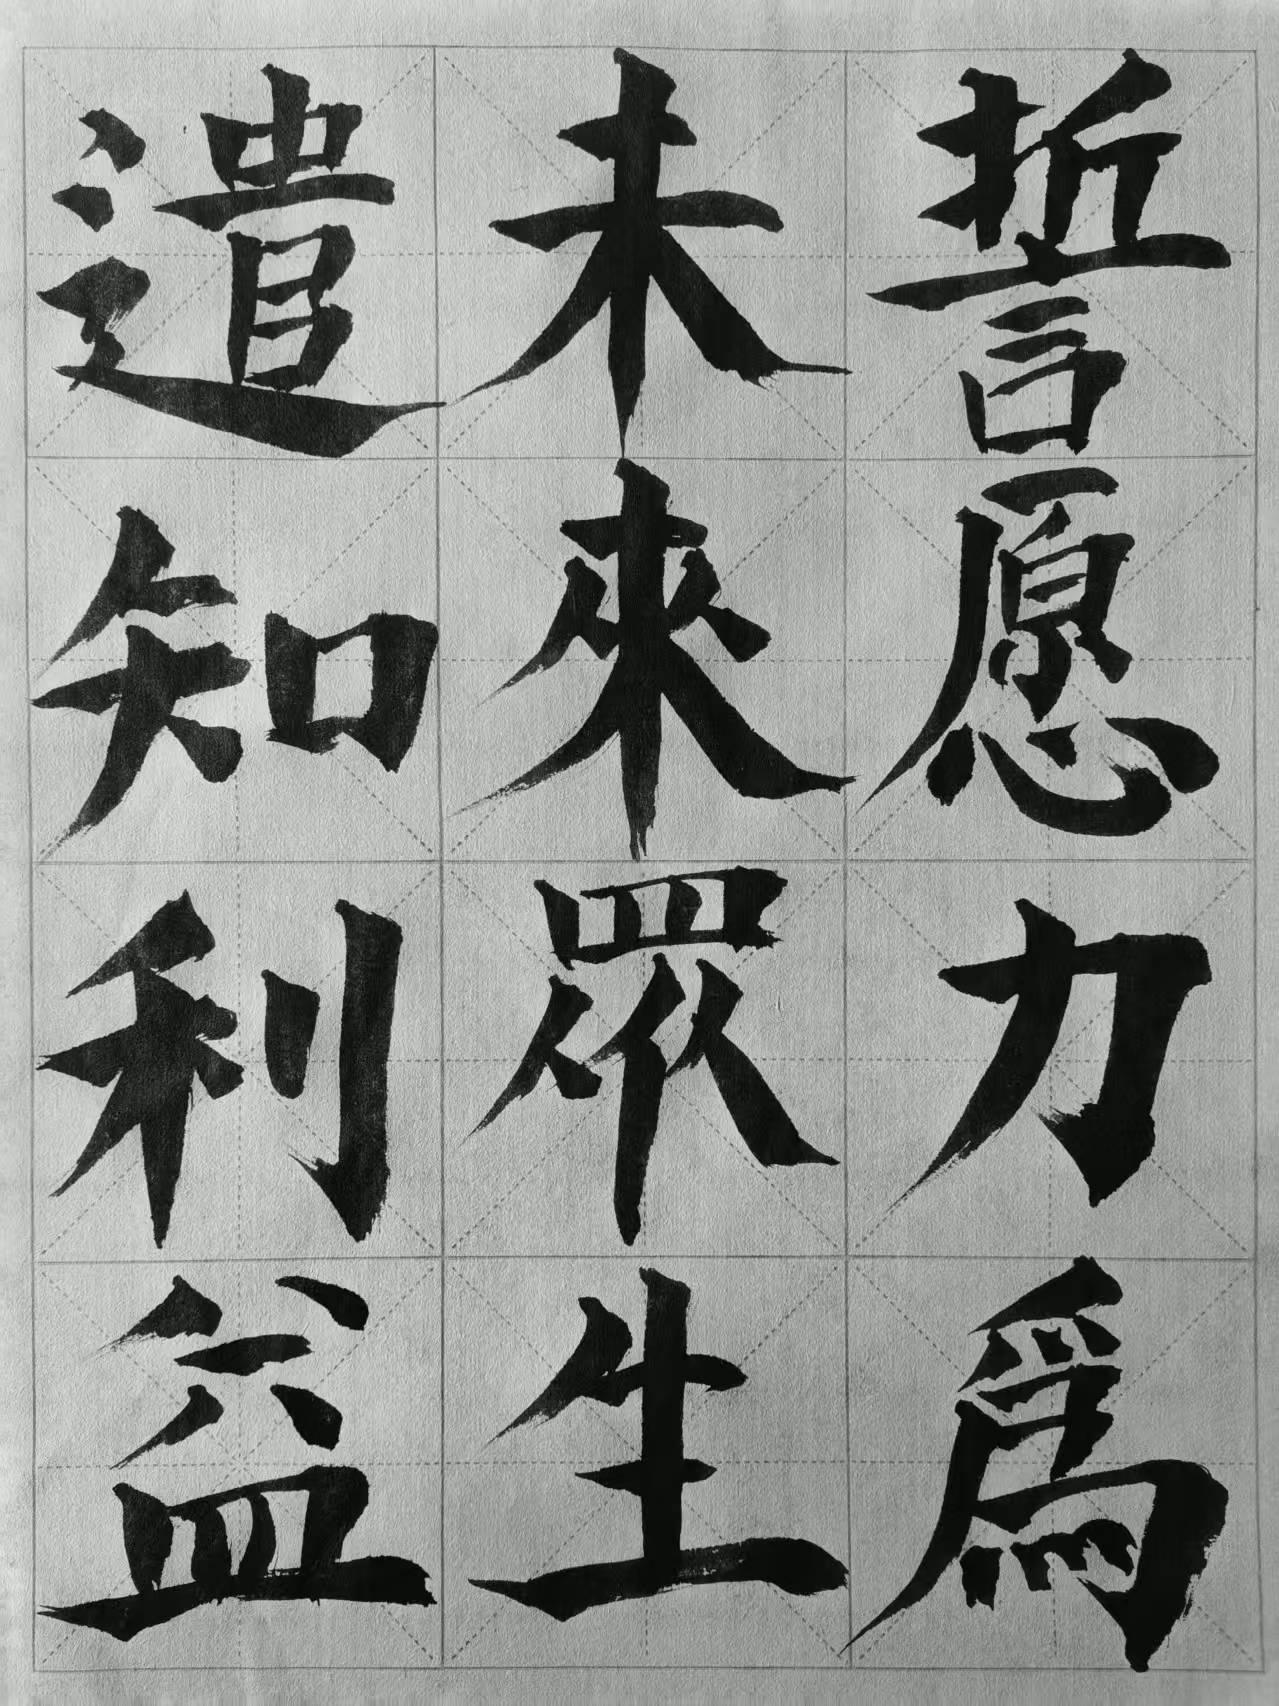 誓愿力爲
未來眾生
遣知利益